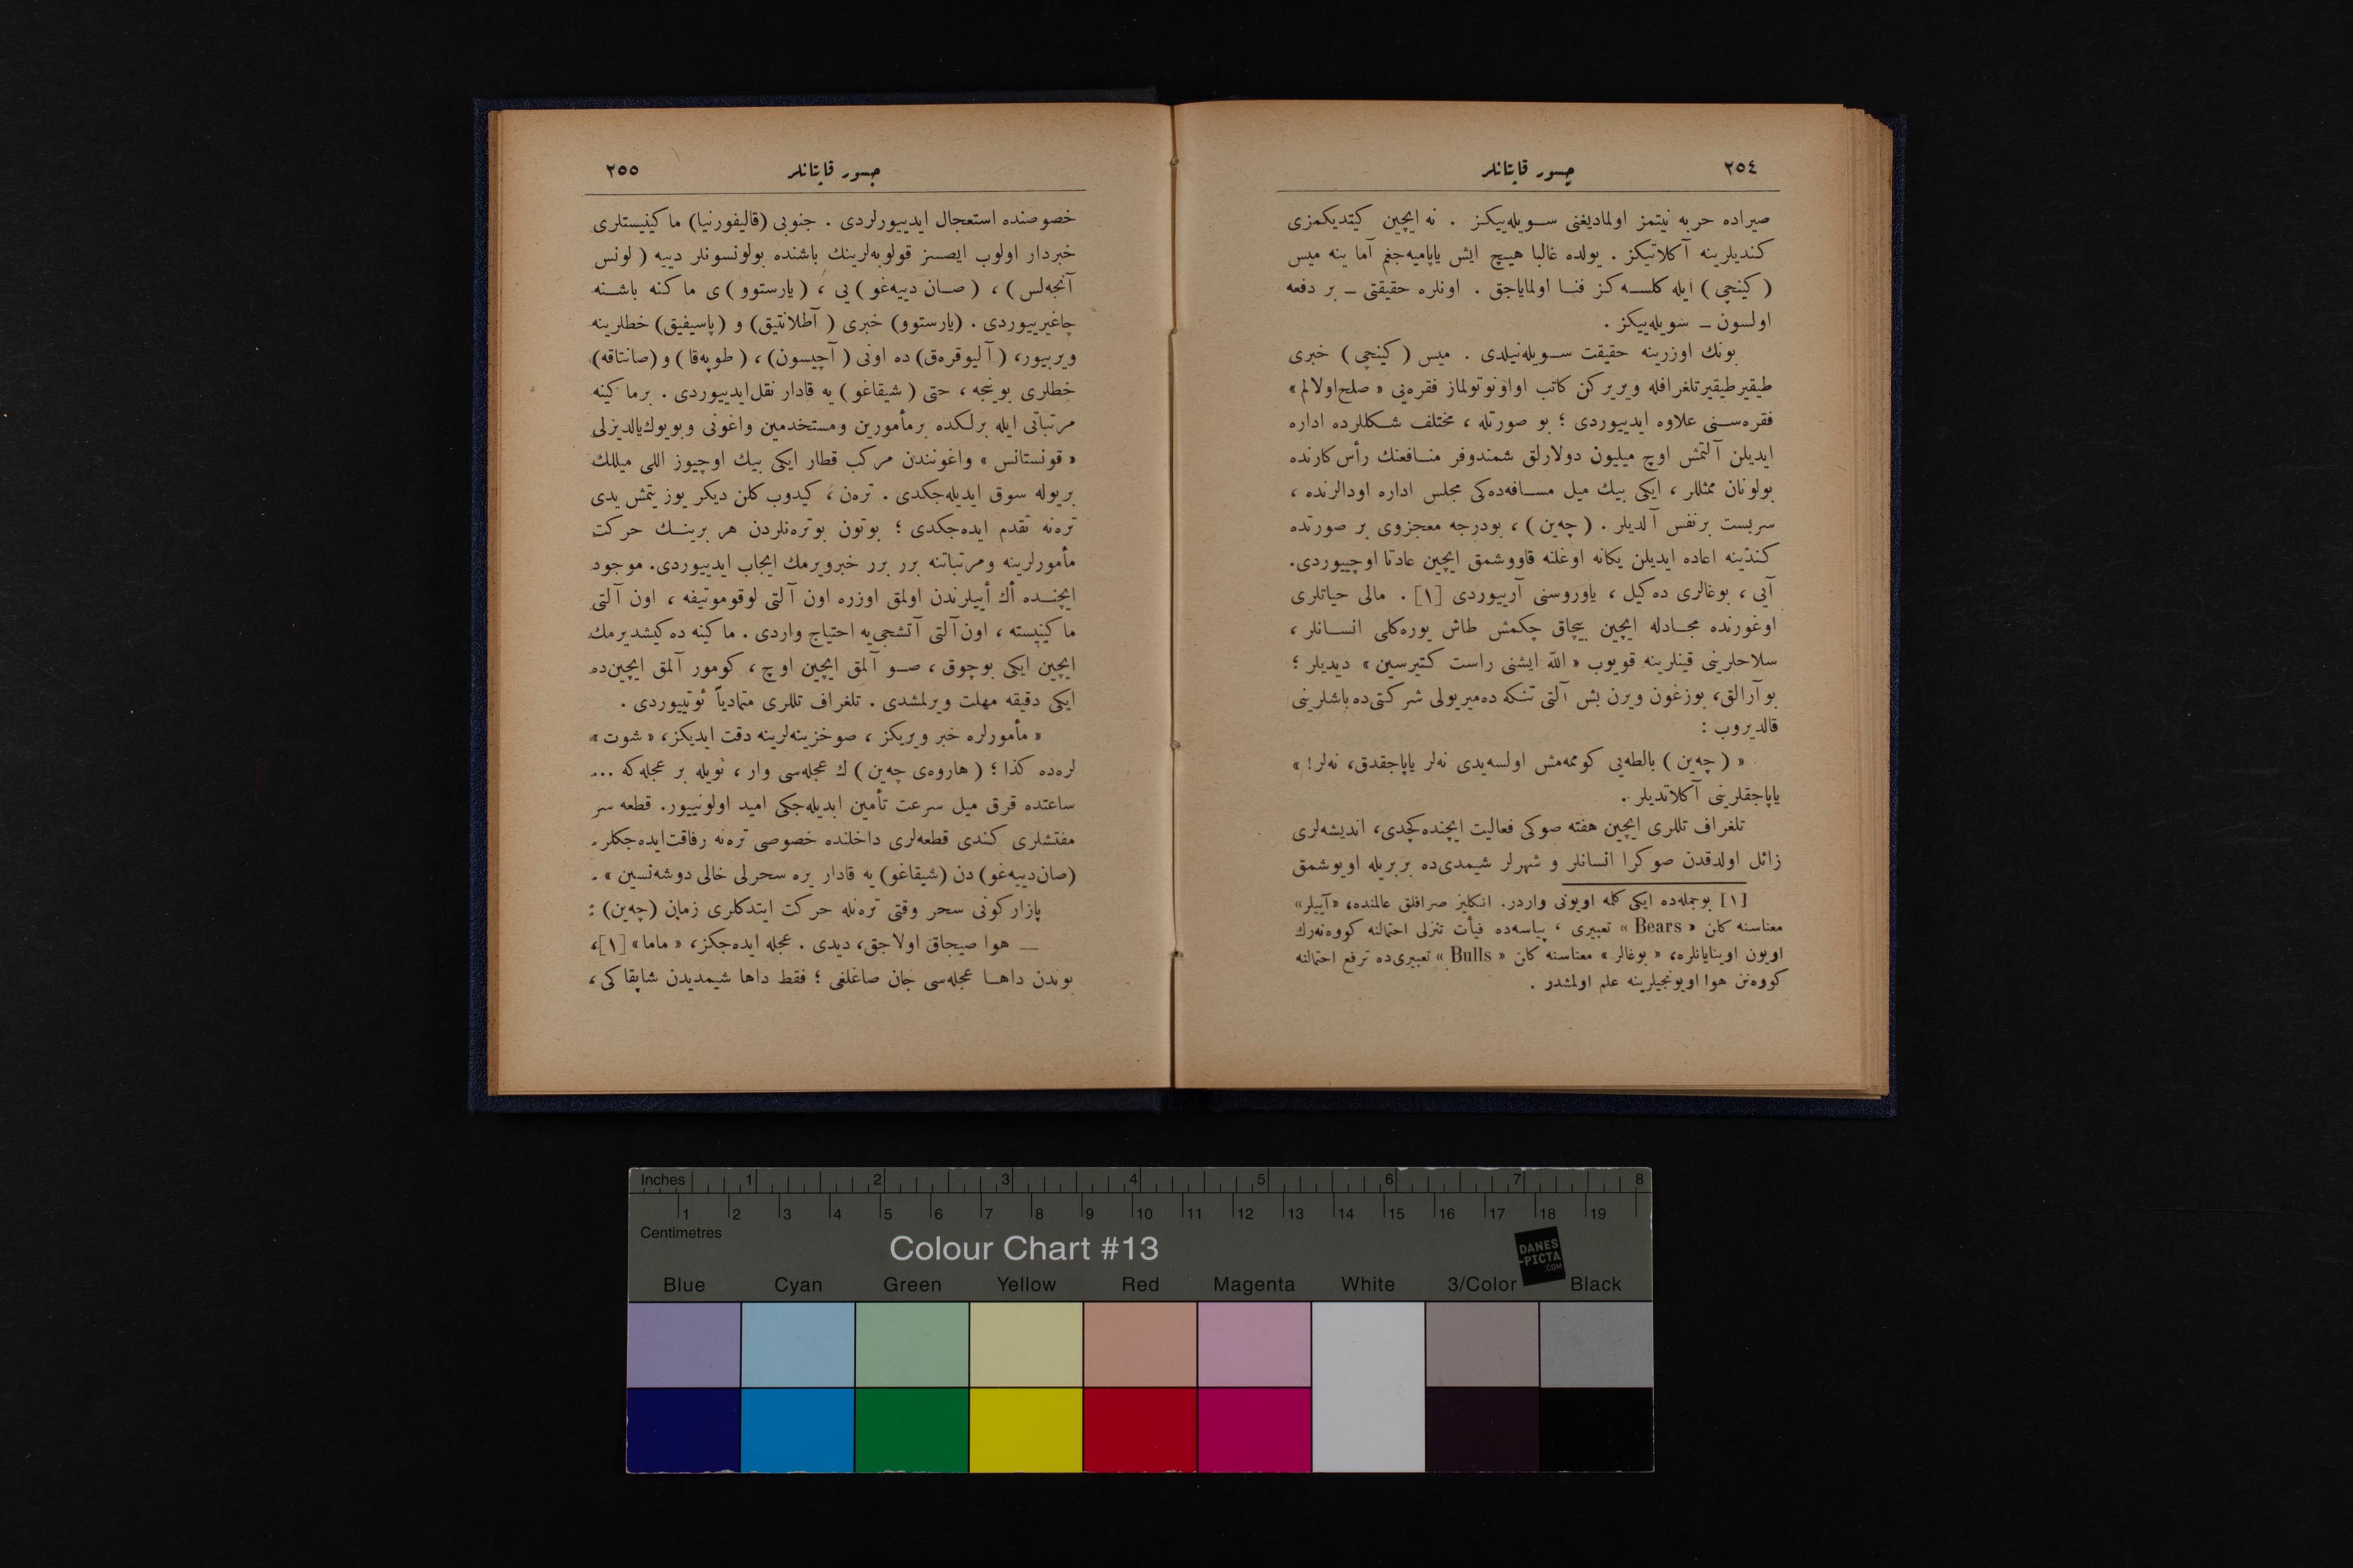 ٢٥٤
جسور قاپتانلر
صیراده حربه نیتمز اولمادیغنی سـویله‌ییکـز . نه ایچین کیتدیکمزی
کندیلرینه آکلاتیکز . یولده غالبا هیـچ ایش یاپامیه‌جغم آما ینه میس
( کینجی ) ایله کلسـه‌کز فنـا اولمایاجق . اونلره حقیقتی ــ بر دفعه
اولسون ــ سویله‌ییکز .
بونك اوزرینه حقیقت سـویله‌نیلدی . میس ( کینجی ) خبری
طیقیرطیقیرتلغرافله ویریرکن کاتب اواونوتولماز فقره‌یی « صلح‌اولالم »
فقره‌سـنی علاوه ایدییوردی ؛ بو صورتله ، مختلف شـکللرده اداره
ایدیلن آلتمش اوچ میلیون دولارلق شمندوفر منـافعنك رأس‌کارنده
بولونان ممثللر ، ایکی بیك میل مسـافه‌ده‌کی مجلس اداره اودالرنده ،
سربست برنفس آلدیلر . ( چه‌ین ) ، بودرجه معجزوی بر صورتده
کندینه اعاده ایدیلن یکانه اوغلنه قاووشمق ایچین عادتا اوچییوردی.
آیی ، بوغالری ده‌کیل ، یاوروسنی آرییوردی [١] . مالی حیاتلری
اوغورنده مجـادله ایچین بیچاق چکمش طاش یوره‌کلی انسـانلر ،
سلاحلرینی قینلرینه قویوب « الله ایشنی راست کتیرسین » دیدیلر ؛
بوآرالق، بوزغون ویرن بش آلتی تنکه ده‌میریولی شرکتی‌ده باشلرینی
قالدیروب :
« ( چه‌ین ) بالطه‌یی کوممه‌مش اولسه‌یدی نه‌لر یاپاجقدق، نه‌لر! »
یاپاجقلرینی آکلاتدیلر .
تلغراف تللری ایچین هفته صوکی فعالیت ایچنده‌کچدی، اندیشه‌لری
زائل اولدقدن صوکرا انسانلر و شهرلر شیمدی‌ده بربریله اویوشمق
[١] بوجمله‌ده ایکی کله اویونی واردر. انکلیز صرافلق عالمنده، «آییلر»
معناسنه کلن « Bears » تعبیری ، پیاسه‌ده فیأت تنزلی احتمالنه کووه‌نه‌رك
اویون اوینایانلره، « بوغالر » معناسنه کلن « Bulls » تعبیری‌ده ترفع احتمالنه
کووه‌نن هوا اویونجیلرینه علم اولمشدر .
جسور قاپتانلر
٢٥٥
خصوصنده استعجال ایدییورلردی . جنوبی (قالیفورنیا) ماکینیستلری
خبردار اولوب ایصسز قولوبه‌لرینك باشنده بولونسونلر دییه ( لوس
آنجه‌لس ) ، ( صـان دییه‌غو ) یی ، ( بارستوو ) ی ماکنه باشـنه
چاغیرییوردی . (بارستوو) خبری ( آطلانتیق) و (پاسیفیق) خطلرینه
ویرییور، ( آلبوقرەق) ده اونی ( آچیسون) ، ( طوپه‌قا ) و (صانتافه)
خطلری بوینجه ، حتی ( شیقاغو ) یه قادار نقل‌ایدییوردی . برماکینه
مرتباتی ایله برلـکده برمأمورین ومستخدمین واغونی وبویوك‌یالدیزلی
« قونستانس » واغونندن مرکب قطار ایکی بیك اوچیوز اللی میللك
بریوله سوق ایدیله‌جکدی . تره‌ن ، کیدوب کلن دیکر یوز یتمش یدی
تره‌نه تقدم ایده‌جکدی ؛ بوتون بوتره‌نلردن هر برینـك حرکت
مأمورلرینه ومرتباتنه برر برر خبرویرمك ایجاب ایدییوردی. موجود
ایچنـده أك أییلرندن اولمق اوزره اون آلتی لوقوموتیفه ، اون آلتی
ماکینیسته ، اون‌آلتی آتشجی‌یه احتیاج واردی . ماکینه ده‌کیشدیرمك
ایچین ایکی بوچوق ، صـو آلمق ایچین اوچ ، کومور آلمق ایچین‌ده
ایکی دقیقه مهلت ویرلمشدی . تلغراف تللری متمادیاً ئوتییوردی .
« مأمورلره خبر ویریکز ، صوخزینه‌لرینه دقت ایدیکز، « شوت »
لره‌ده کذا ؛ ( هاروه‌ی چه‌ین ) ك عجله‌سی وار ، ئویله بر عجله‌که ...
ساعتده قرق میل سرعت تأمین ایدیله‌جکی امید اولونییور. قطعه سر
مفتشلری کندی قطعه‌لری داخلنده خصوصی تره‌نه رفاقت‌ایده‌جکلر.
(صان‌دییه‌غو) دن (شیقاغو) یه قادار یره سحرلی خالی دوشه‌نسین » .
پازارکونی سحر وقتی تره‌نله حرکت ایتدکلری زمان (چه‌ین) :
— هوا صیجاق اولاجق، دیدی . عجله ایده‌جکز، « ماما » [١]،
بوندن داهـا عجله‌سی جان صاغلغی ؛ فقط داها شیمدیدن شاپقاکی ،
Inches 1 2 3 4 5 6 7 8
1 2 3 4 5 6 7 8 9 10 11 12 13 14 15 16 17 18 19
Centimetres
Colour Chart #13
DANES
-PICTA
.COM
Blue Cyan Green Yellow Red Magenta White 3/Color Black